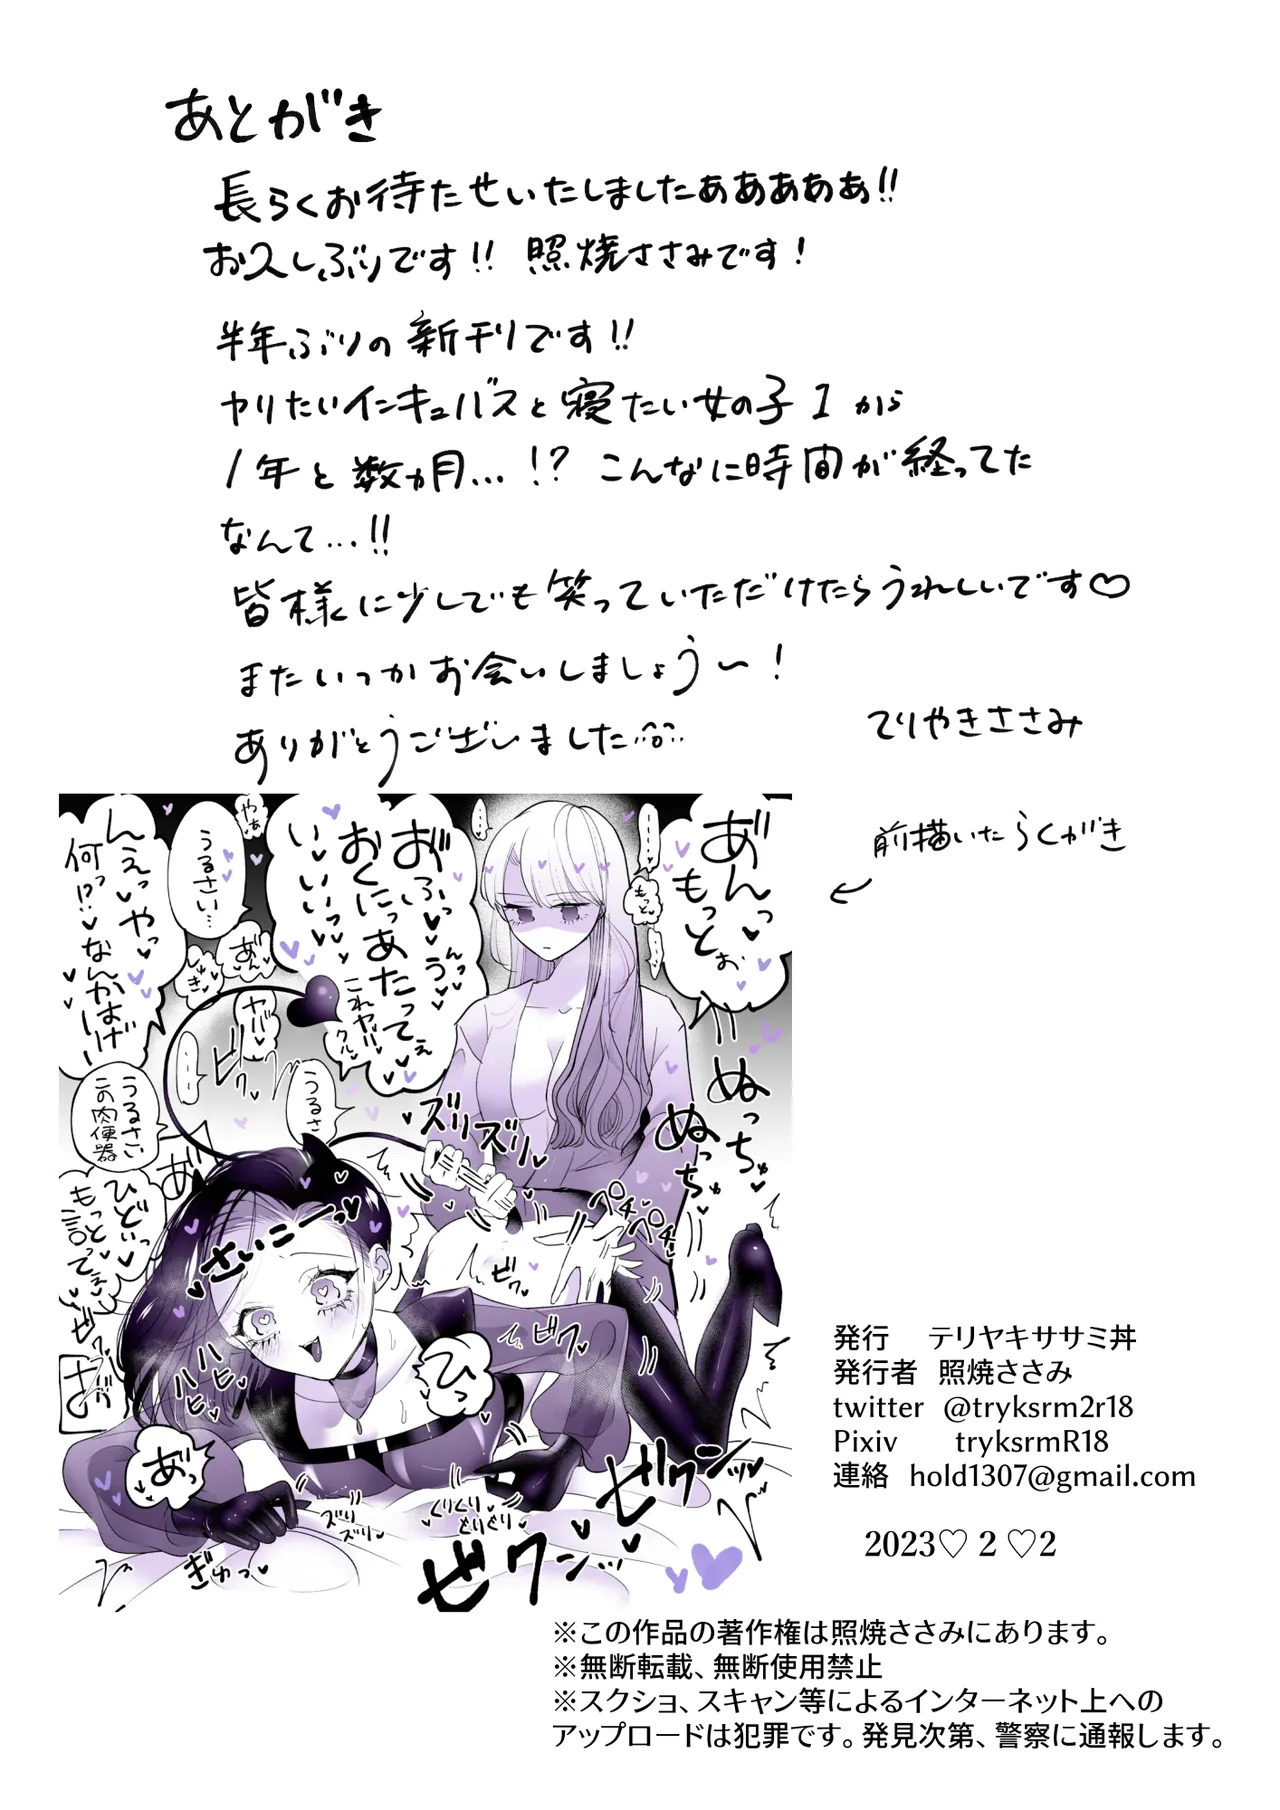 あとがき
長らくお待たせいたしましたあああああ!!
お久しぶりです!! 照焼ささみです!
半年ぶりの新刊です!!
ヤりたいインキュバスと寝たい女の子1から
1年と数ヵ月…!? こんなに時間が経ってた
なんて…!!
皆様に少しでも笑っていただけたらうれしいです♡
またいつかお会いしましょう〜!
ありがとうございました
てりやきささみ
前描いたらくがき
あんっ♥
もっとぉ
うるさい…
おふっ♥うんっ♥
おくにっあたってぇ
いいっいいっ
これヤバ
んえっやっ♥
何っ!?♥なんかはげし
うるさい
この肉便器
うるさ
ひどぃっ
もっと言ってぇ
さいこーっ♥
ひっ
あっ
ズリズリ
ぬっちゅ
ぬっちゅ
ハヒハヒ
ビクッ
ぎゅっ♥
ズリズリ
ぐりぐり
とりぐり
ゼクンッ
発行 テリヤキササミ丼
発行者 照焼ささみ
twitter @tryksrm2r18
Pixiv tryksrmR18
連絡 hold1307@gmail.com
2023♡ 2 ♡2
※この作品の著作権は照焼ささみにあります。
※無断転載、無断使用禁止
※スクショ、スキャン等によるインターネット上への
アップロードは犯罪です。発見次第、警察に通報します。